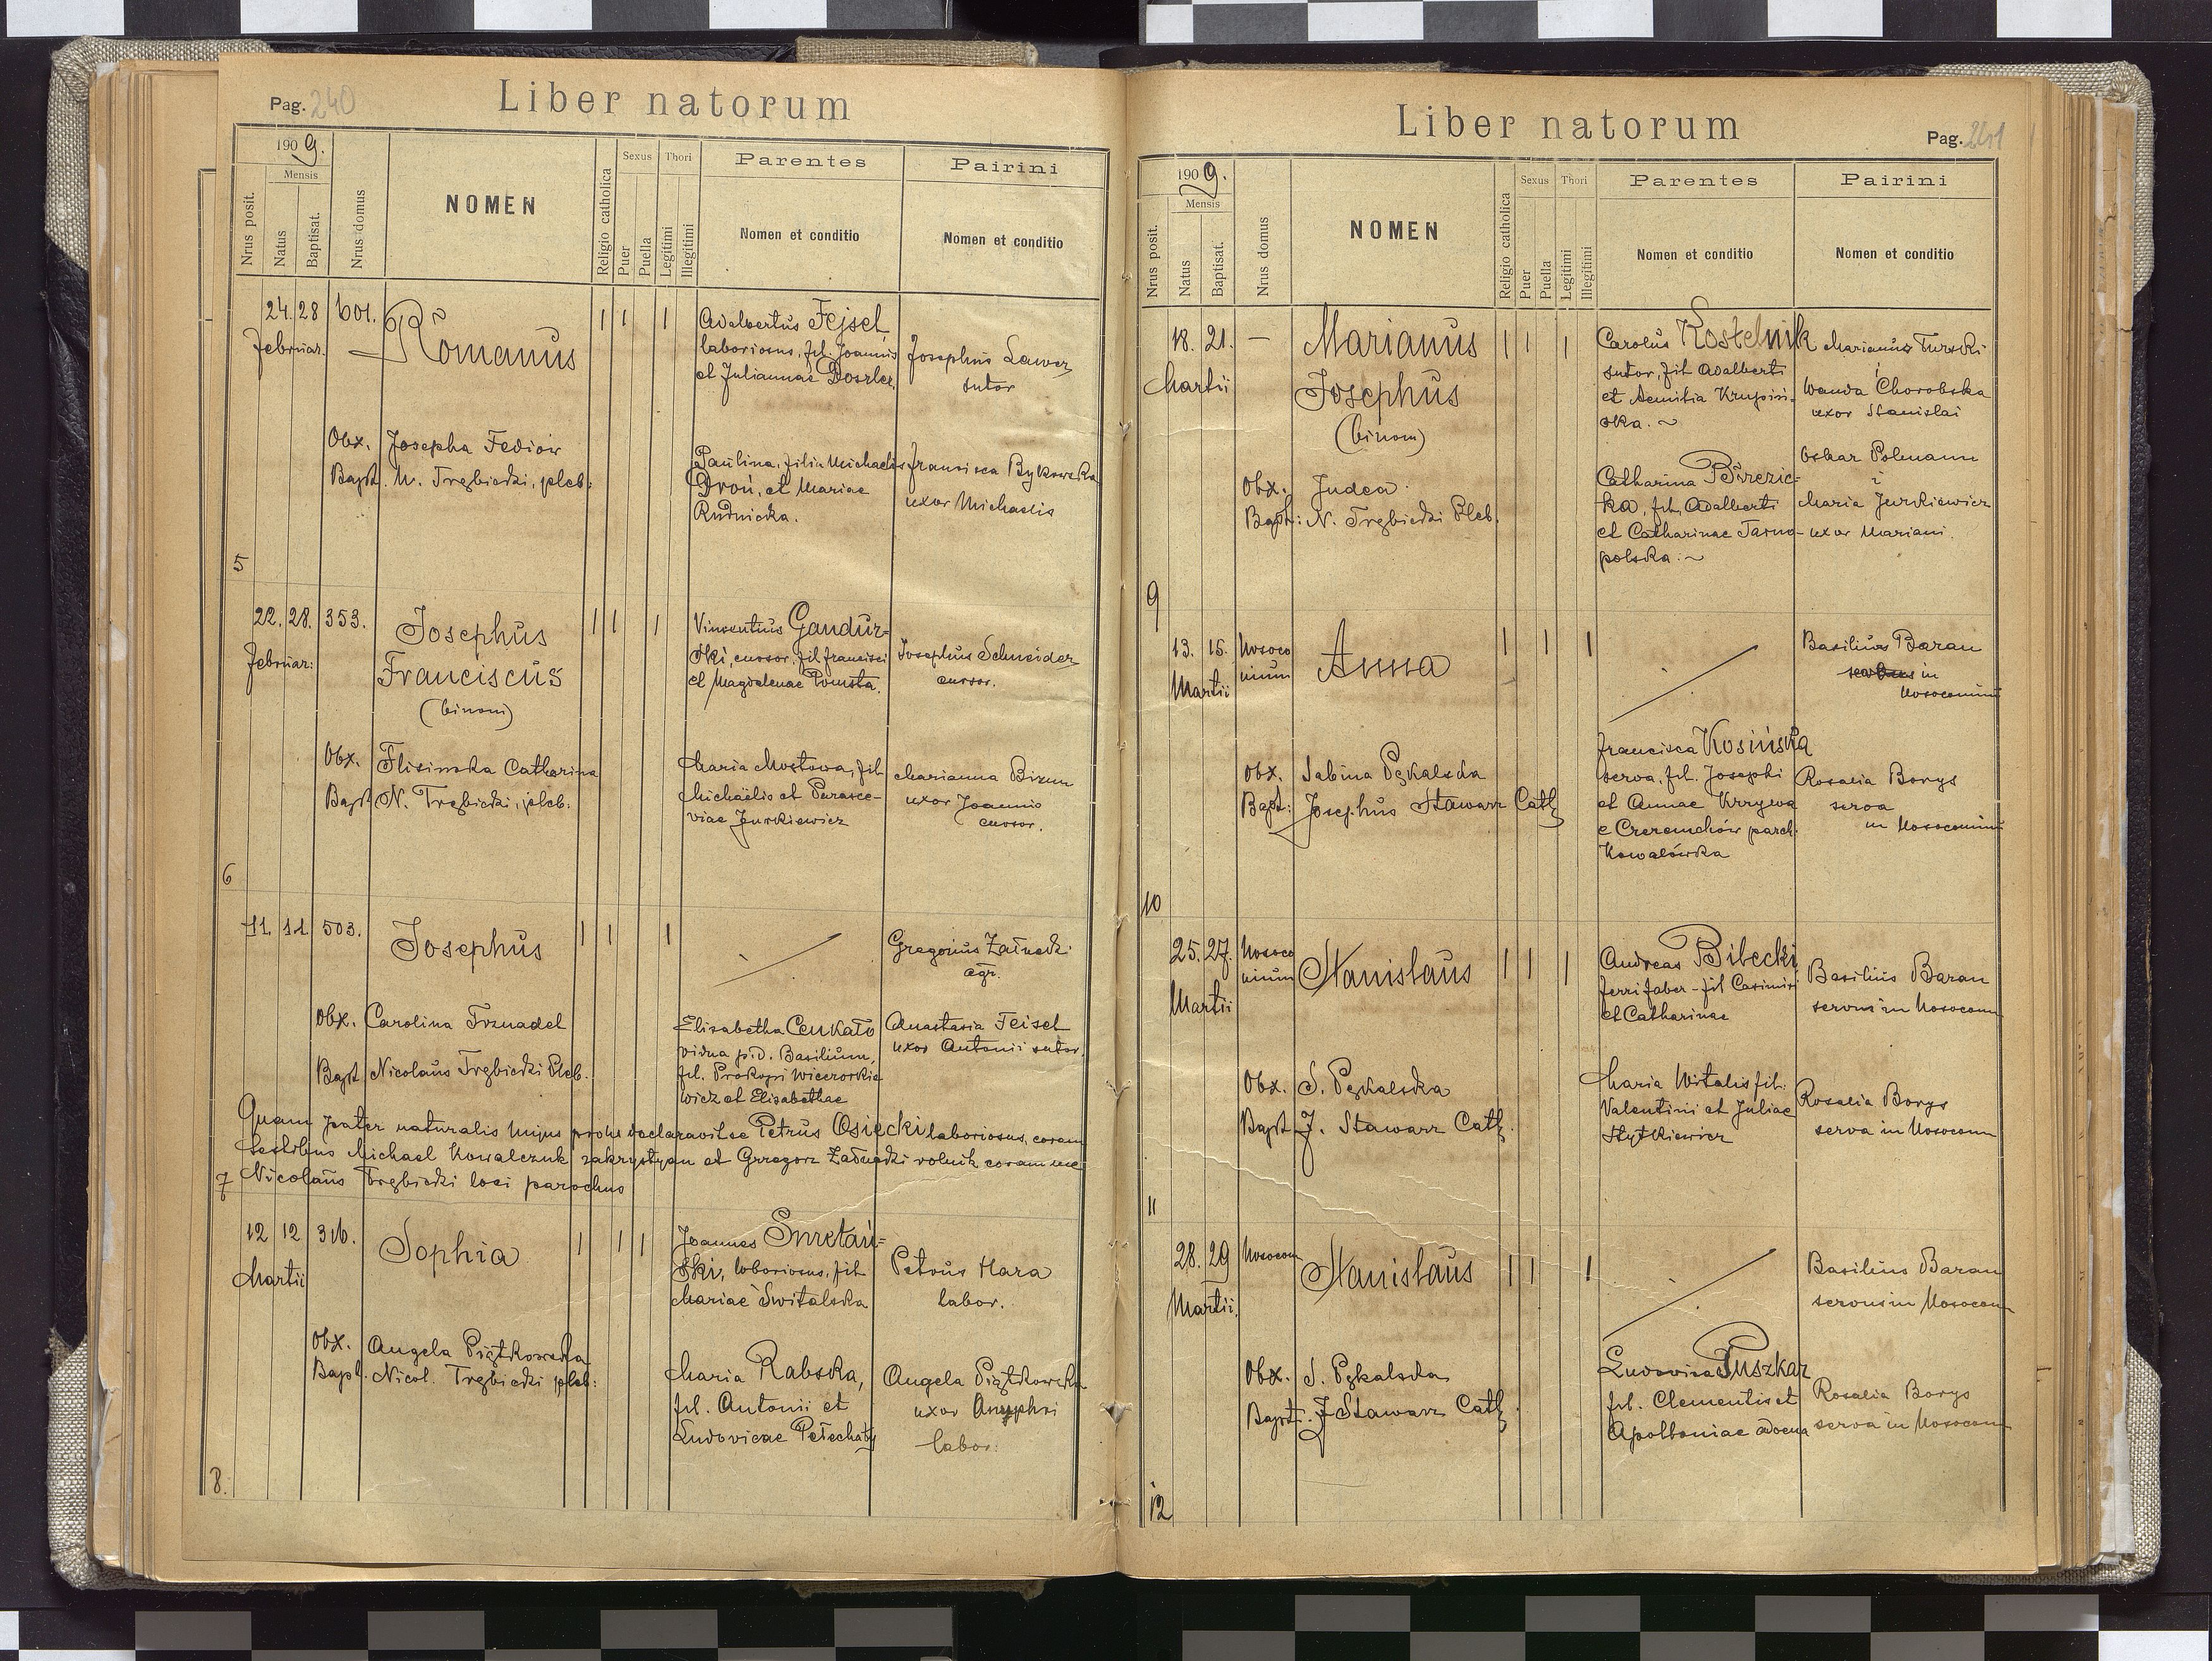 Pag. 240
Liber natorum
1909.
Mensis
Nrus posit.
Natus
Baptisat.
Nrus domus
NOMEN
Religio catholica
Sexus
Puer
Puella
Thori
Legitimi
Illegitimi
Parentes
Nomen et conditio
Pairini
Nomen et conditio
24. 28 601.
Februar.
Romanus
Adalbertus Fejsel
laboriosus, fil. Joannis
et Juliannae
Josephus Lawer
sutor
Obx. Josepha Fediow
Bapt. N. Trębicki, pleb:
Paulina, filia Michaelis
Droń, et Mariae
Rudnicka.
Francisca Bykowska
uxor Michaelis
5
22. 28. 353.
Februar:
Josephus
Franciscus
(binom)
Vincentius Gandur-
ski, cursor, fil Francisci
et Magdalenae Pomsta.
Josephus Schneider
cursor.
Obx. Flisinska Catharina
Bapt N. Trębicki, pleb:
Maria Mostowa, fil
Michaelis et Parasce-
viae Jurkiewicz
Marianna Bizun
uxor Joannis
cursor.
6
11. 14 503.
Josephus
Gregorius Załucki
agr.
Obx. Carolina Trznadel
Bapt Nicolaus Trębicki Pleb.
Elisabetha Cenkało
vidua p.d. Basilium,
fil. Prokopi Wiczorkie
wicz et Elisabethae
Anastasia Feisel
uxor Antonii sutor.
Quam pater naturalis hujus prolis declaravit se Petrus Osiecki laboriosus, coram
testibus Michael Kowalczuk zakrystyan et Grzegorz Załucki rolnik coram me
Nicolaus Trębicki loci parochus
7
12 12 316.
Martii
Sophia
Joannes Smretań-
ski, laboriosus, fil
Mariae Switalska
Petrus Hara
labor.
Obx. Angela Piątkowska
Bapt. Nicol. Trębicki pleb:
Maria Rabska,
fil. Antonii et
Ludovicae Pełechaty
Angela Piątkowska
uxor Onuphri
labor:
8.
Liber natorum
Pag. 241
1909.
Mensis
Nrus posit.
Natus
Baptisat.
Nrus domus
NOMEN
Religio catholica
Sexus
Puer
Puella
Thori
Legitimi
Illegitimi
Parentes
Nomen et conditio
Pairini
Nomen et conditio
18. 21. —
Martii
Marianus
Josephus
(binom)
Carolus Kostelnik
sutor, fil Adalberti
et Aemilia Krupiń-
ska. ~
Marianus Turski
i
Wanda Chorobska
uxor Stanislai
Obx. Judea
Bapt: N. Trębicki Pleb.
Catharina Brzezic-
ka, fil, Adalberti
et Catharinae Tarno-
polska. ~
Oskar Polmann
i
Maria Jurkiewicz
uxor Mariani.
9
13. 15. Nosoco
nium
Martii
Anna
Basilius Baran
in
Nosocomium
Obx. Sabina Pękalska
Bapt: Josephus Stawarz Cath
Francisca Kosińska
serva, fil. Josephi
et Annae Krzywa
e Czeremchów parch.
Kowalówka
Rosalia Borys
serva
in Nosocomium
10
25. 27. Nosoco
nium
Martii
Stanislaus
Andreas Bilecki
ferri faber - fil Casimiri
et Catharinae
Basilius Baran
servus in Nosocom
Obx. S. Pękalska
Bapt J. Stawarz Cath.
Maria Witalis fil.
Valentini et Juliae
Hytkiewicz
Rosalia Borys
serva in Nosocom
11
28. 29 Nosocom
Martii.
Stanislaus
Basilius Baran
servus in Nosocom
Obx. S. Pękalska
Bapt: J Stawarz Cath.
Ludovica Puszkar
fil. Clementis et
Apolloniae advena
Rosalia Borys
serva in Nosocom
12